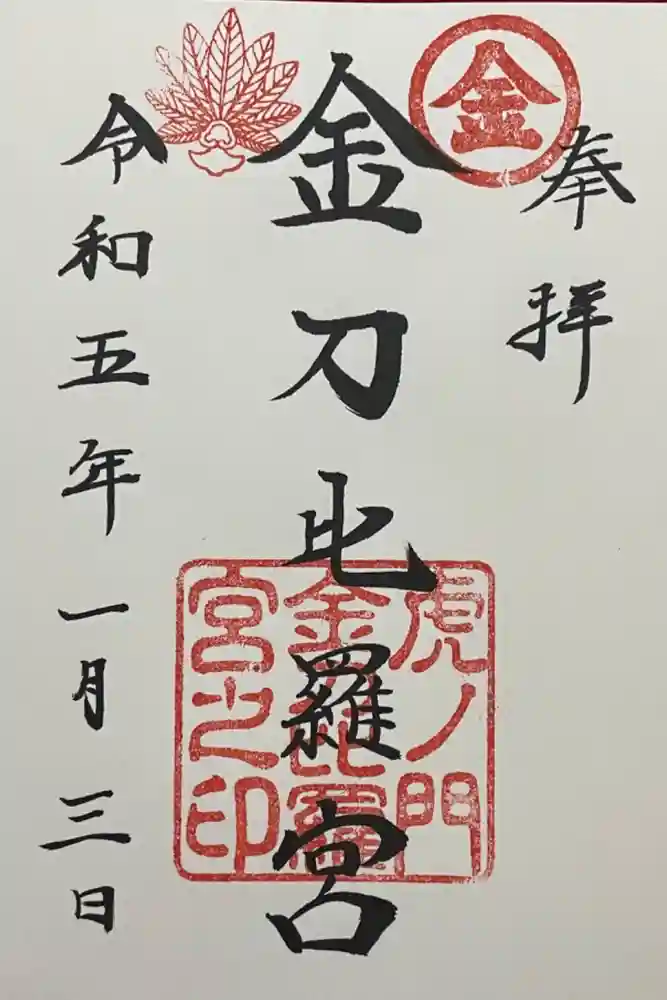 奉拝
金
金刀比羅宮
虎ノ門
金刀比羅
宮之印
令和五年一月三日